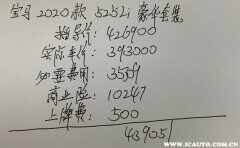 宝马2020款 525Li 豪华套装
指导价: 426900
实际车价: 393000
必要费用: 35559
商业险: 10247
上牌费: 500
439051
WWW.XCAUTO.COM.CN